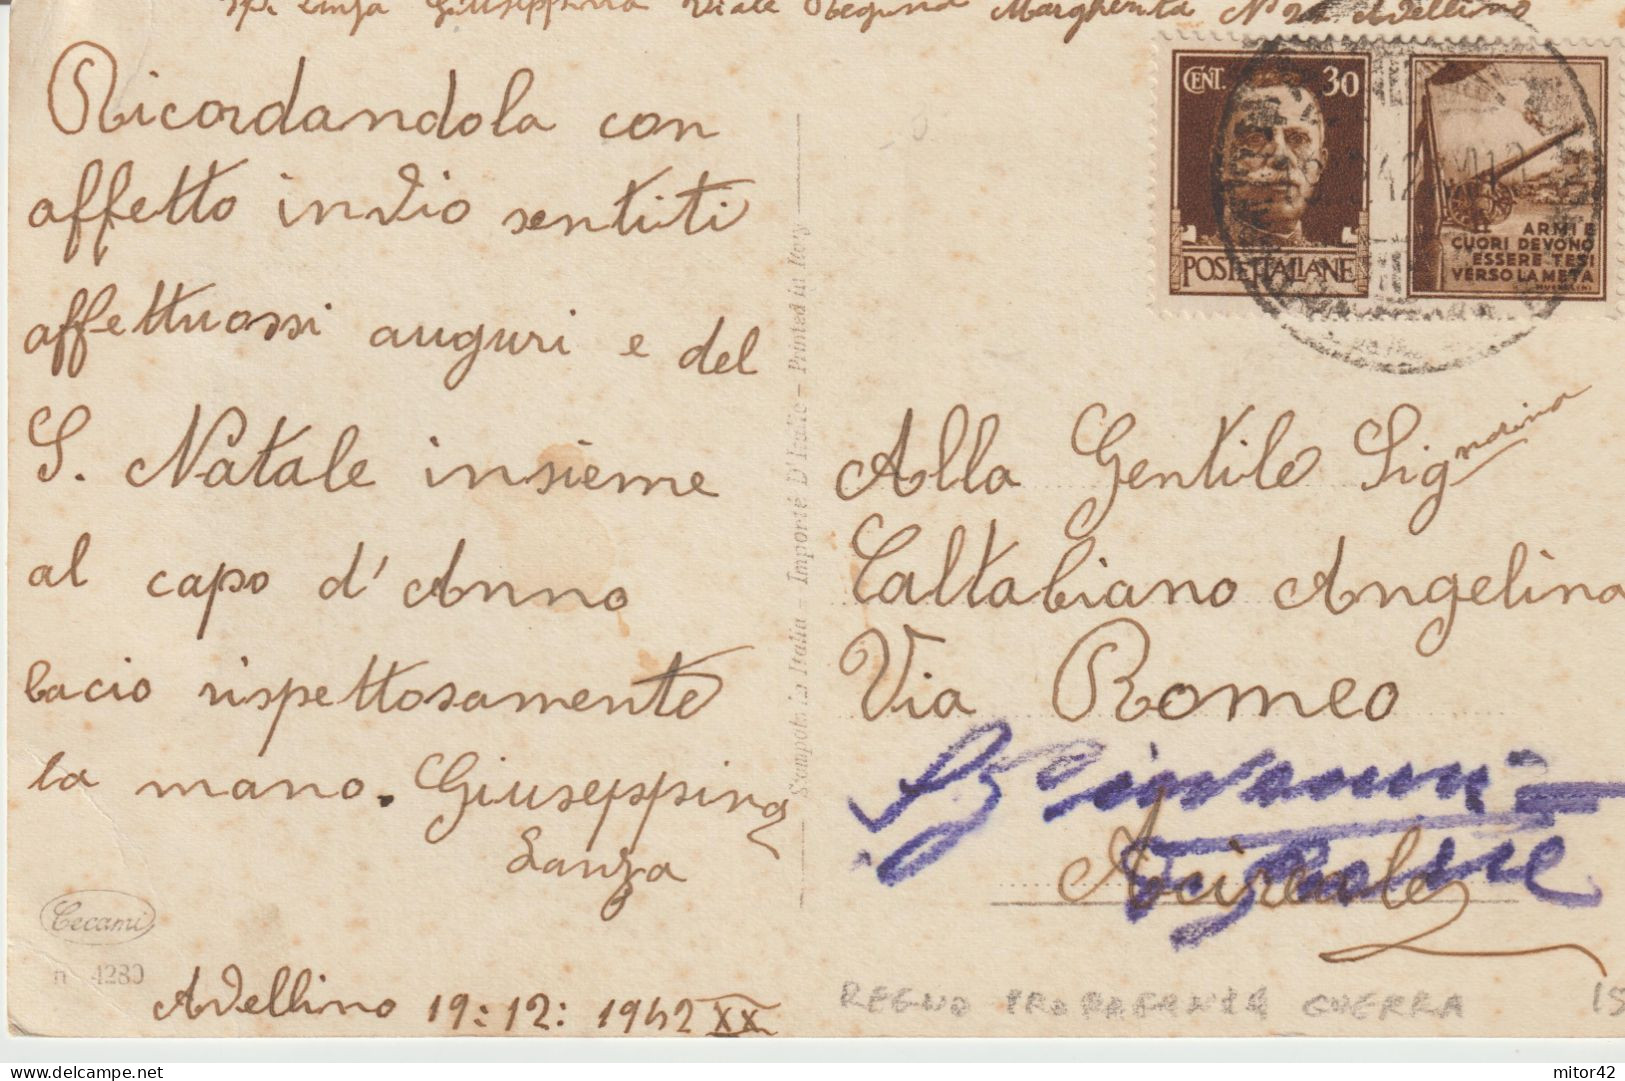 Giuseppina Viale Regina Margherita Nº 21 Avellino
Ricordandola con
affetto invio sentiti
affettuossi auguri e del
S. Natale insieme
al capo d'Anno
bacio rispettosamente
la mano. Giuseppina
Lanza
Cecami
n. 4280
Avellino 19:12:1942 XX
Stampato in Italia - Importé D'Italie - Printed in Italy
CENT. 30
POSTE ITALIANE
ARMI E
CUORI DEVONO
ESSERE TESI
VERSO LA META
MUSSOLINI
Alla Gentile Signorina
Caltabiano Angelina
Via Romeo
Giovanni
Acireale
REGNO PROPAGANDA GUERRA
mitor42